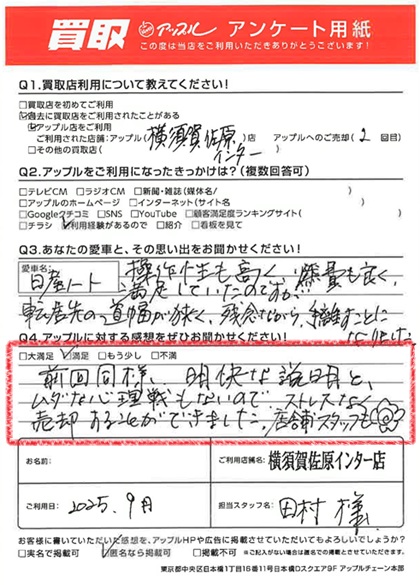 買取 アップル アンケート用紙
この度は当店をご利用いただきありがとうございます!
Q1.買取店利用について教えてください!
□買取店を初めてご利用
☑過去に買取店をご利用されたことがある
☑アップル店をご利用
ご利用された店舗:アップル(横須賀佐原インター)店 アップルへのご売却(2回目)
□その他の買取店( )
Q2.アップルをご利用になったきっかけは?(複数回答可)
□テレビCM □ラジオCM □新聞・雑誌(媒体名/ )
□アップルのホームページ □インターネット(サイト名 )
□Googleクチコミ □SNS □YouTube □顧客満足度ランキングサイト( )
□チラシ ☑利用経験があるので □紹介 □看板を見て
Q3.あなたの愛車と、その思い出をお聞かせください!
愛車名:
日産ノート 操作性も高く、燃費も良く、
満足していたのですが、
転居先の道幅が狭く、残念ながら、手離すことに
なりました
Q4.アップルに対する感想をぜひお聞かせください!
□大満足 ☑満足 □もう少し □不満
前回同様、明快な説明と、
ムダな心理戦もないので ストレスなく
売却することができました。店舗スタッフも
お名前: ご利用店舗名: 横須賀佐原インター店
ご利用日: 2025.9月 担当スタッフ名: 田村 様
お客様に書いていただいた感想を、アップルHPや広告に掲載させていただいてもよろしいでしょうか?
□実名で掲載可 ☑匿名なら掲載可 □掲載不可 ※ご記入がない場合は匿名での掲載とさせていただきます。
東京都中央区日本橋1丁目16番11号日本橋Dスクエア9F アップルチェーン本部